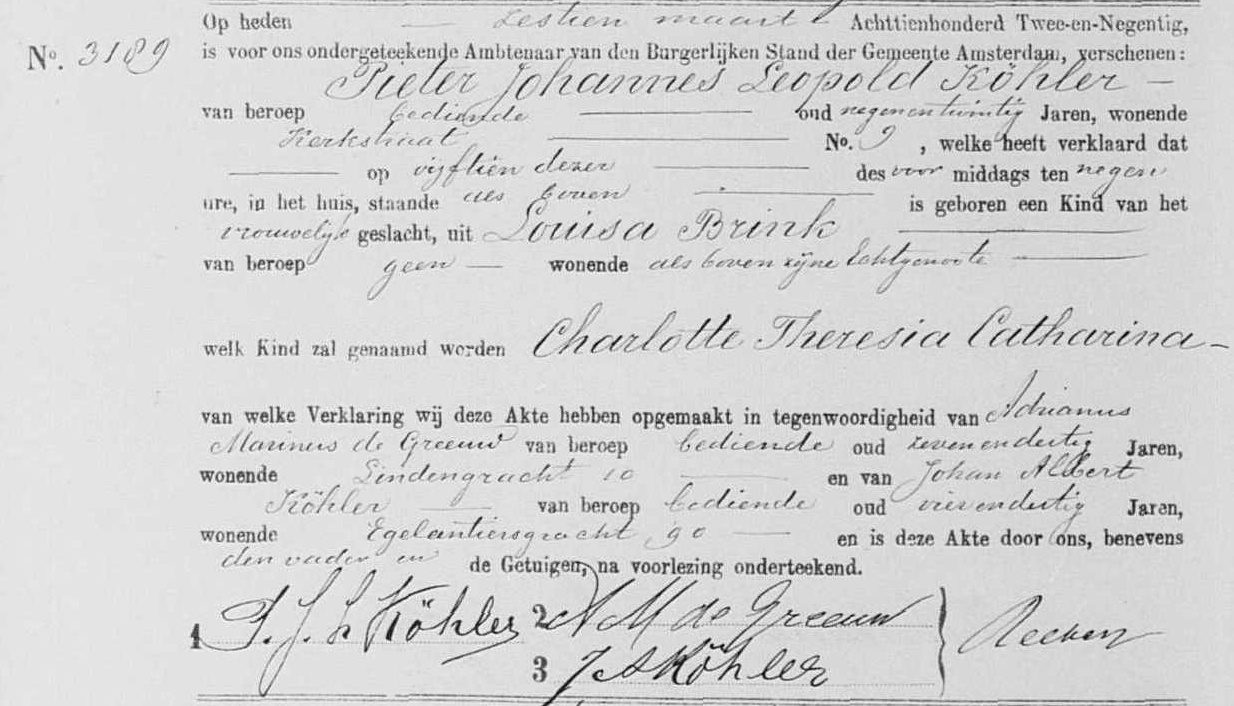 Op heden zestien maart Achttienhonderd Twee-en-Negentig,
No. 3189 is voor ons ondergeteekende Ambtenaar van den Burgerlijken Stand der Gemeente Amsterdam, verschenen:
Pieter Johannes Leopold Köhler
van beroep bediende oud negenentwintig Jaren, wonende
Kerkstraat No. 9, welke heeft verklaard dat
op vijftien dezer des voor middags ten negen
ure, in het huis, staande als boven is geboren een Kind van het
vrouwelijk geslacht, uit Louisa Brink
van beroep geen wonende als boven zijne Echtgenoote
welk Kind zal genaamd worden Charlotte Theresia Catharina
van welke Verklaring wij deze Akte hebben opgemaakt in tegenwoordigheid van Adrianus
Marinus de Greeuw van beroep bediende oud zevenendertig Jaren,
wonende Lindengracht 10 en van Johan Albert
Köhler van beroep bediende oud vierendertig Jaren,
wonende Egelantiersgracht 90 en is deze Akte door ons, benevens
den vader en de Getuigen, na voorlezing onderteekend.
1 P. J. L Köhler 2 A M de Greeuw
3 J A Köhler